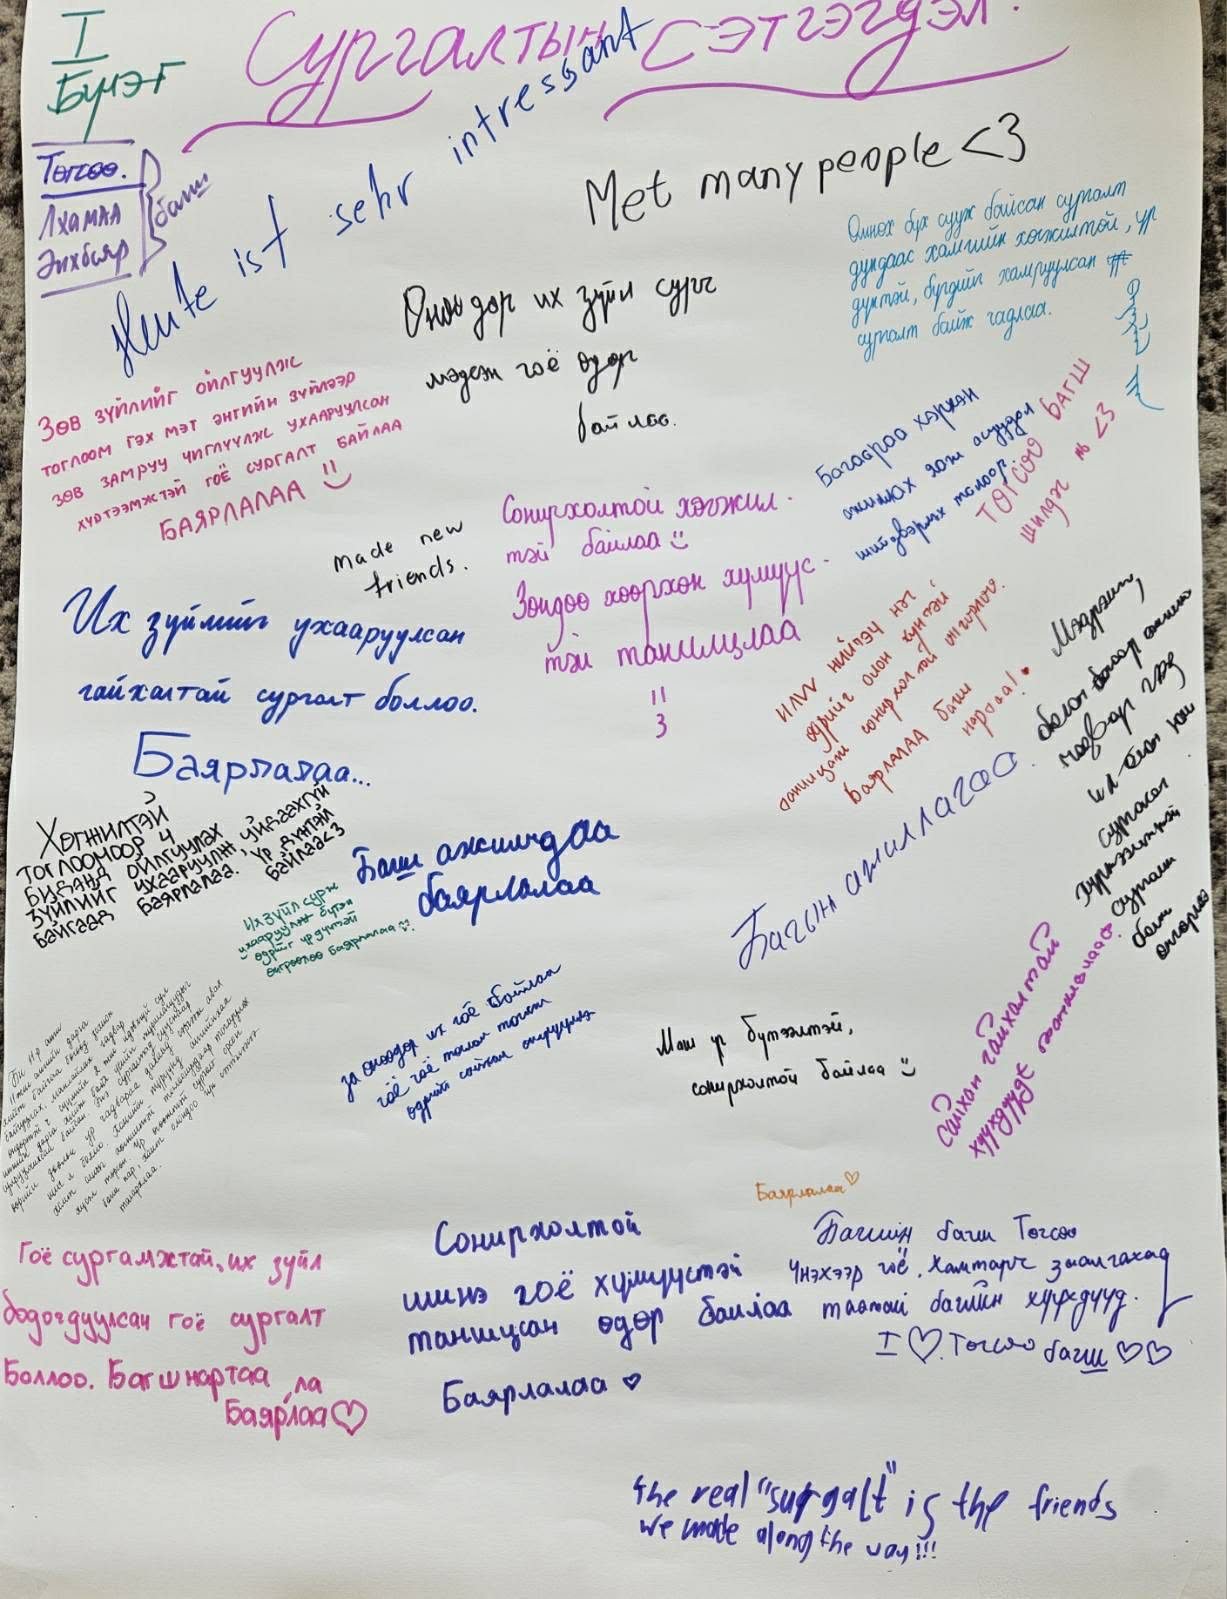 I
Бүлэг
Сургалтын сэтгэгдэл.
Төгсөө.
Лхамаа
Энхбаяр
багш
Heute ist sehr intressant
Met many people <3
Өмнөх бүх сууж байсан сургалт
дундаас хамгийн хөгжилтэй, үр
дүнтэй, бүгдийг хамруулсан
сургалт байж чадлаа.
Өнөөдөр их зүйл сурч
мэдсэн гоё өдөр
байлаа.
Зөв зүйлийг ойлгуулж
тоглоом гэх мэт энгийн зүйлээр
зөв замруу чиглүүлж ухааруулсан
хүртээмжтэй гоё сургалт байлаа
Баярлалаа
Багаараа хэрхэн
ажиллах яаж асуудал
шийдвэрлэх талаар
Төгсөө багш
шилдэг <3
made new
friends.
Сонирхолтой хөгжил-
тэй байлаа
Зөндөө хөөрхөн хүмүүс-
тэй танилцлаа
Их зүйлийг ухааруулсан
гайхалтай сургалт боллоо.
Баярлалаа...
илүү нийтэч нэг
өдрийг олон хүнтэй
танилцаж сонирхолтой өнгөрүүлэв.
Баярлалаа багш
нартаа!
Мэдрэмж,
болон багаар ажиллах
чадвар гээд
их олон юм
сургасан
хүртээмжтэй
сургалт
болж
өнгөрлөө
Багын ажиллагаа.
Хөгжилтэй
тоглоомоор ч
бидэнд ойлгуулах
зүйлийг ухааруулж, уйдаахгүй
байгаад баярлалаа. Үр дүнтэй
байлаа <3
Багш ажилчдаа
баярлалаа
Их зүйл сурж
ухааруулж бүтэн
өдрийг үр дүнтэй
өнгөрөөлөө Баярлалаа
за өнөөдөр их гоё байлаа
гоё гоё тоглоом тоглож
өдрийг сайхан өнгөрүүллээ
Маш үр бүтээлтэй,
сонирхолтой байлаа
сайхан гайхалтай
хүүхдүүдтэй танилцлаа
Баярлалаа
Гоё сургамжтай, их зүйл
бодогдуулсан гоё сургалт
Боллоо. Багш нартаа
Баярлалаа
Сонирхолтой
шинэ гоё хүмүүстэй
танилцсан өдөр байлаа
Баярлалаа
Багийн багш Төгсөө
Үнэхээр гоё. Хамтарч зжиллахад
таатай багийн хүүхдүүд.
I ♡ Төгсөө багш ♡♡
the real "surgalt" is the friends
we made along the way!!!